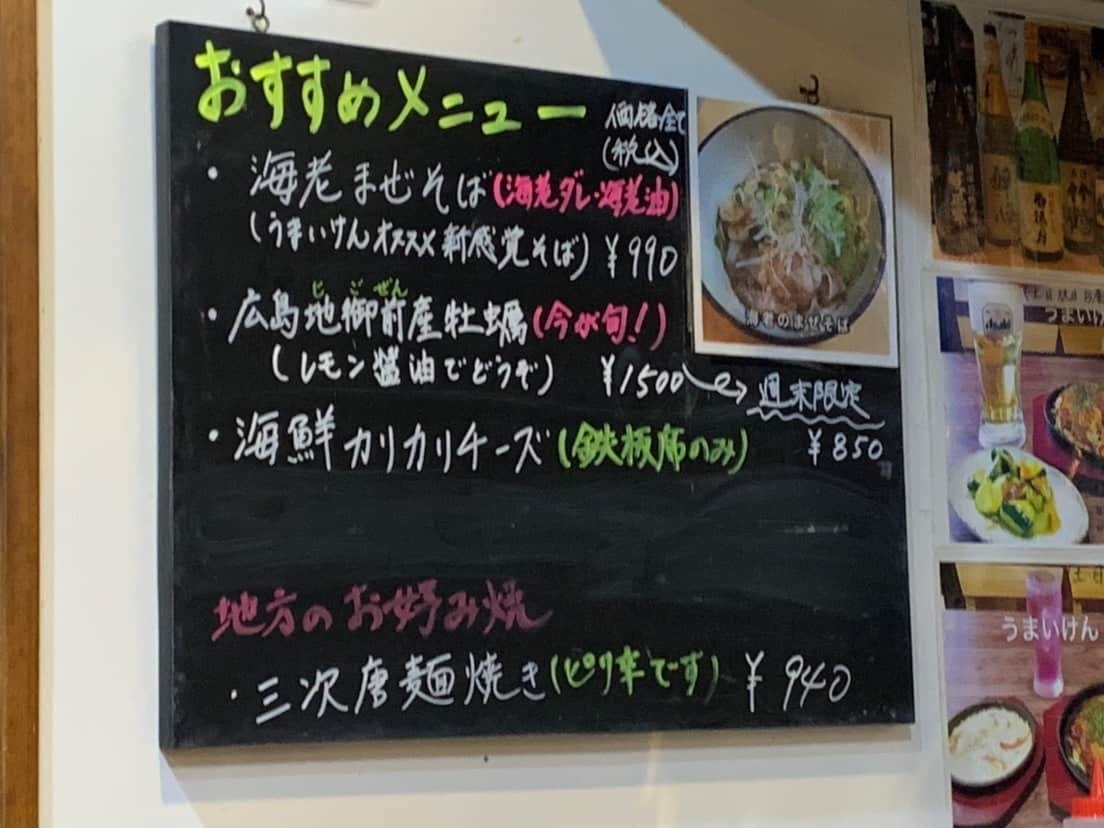 おすすめメニュー
価格全て
(税込)
・海老まぜそば(海老ダレ・海老油)
(うまいけんオススメ新感覚そば) ¥990
じごぜん
・広島地御前産牡蠣(今が旬!)
(レモン醤油でどうぞ) ¥1500
週末限定
・海鮮カリカリチーズ(鉄板席のみ) ¥850
地方のお好み焼
・三次唐麺焼き(ピリ辛です) ¥940
海老のまぜそば
うまいけ
Asahi
土日
うまいけん